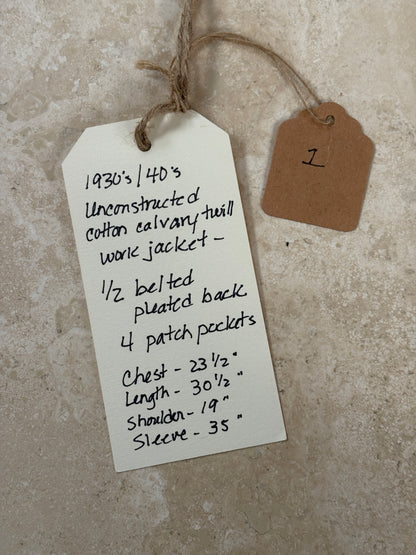 1930's/40's
Unconstructed
cotton calvary twill
work jacket –
1/2 belted
pleated back
4 patch pockets
Chest - 23 1/2"
Length - 30 1/2"
Shoulder - 19"
Sleeve - 35"
1